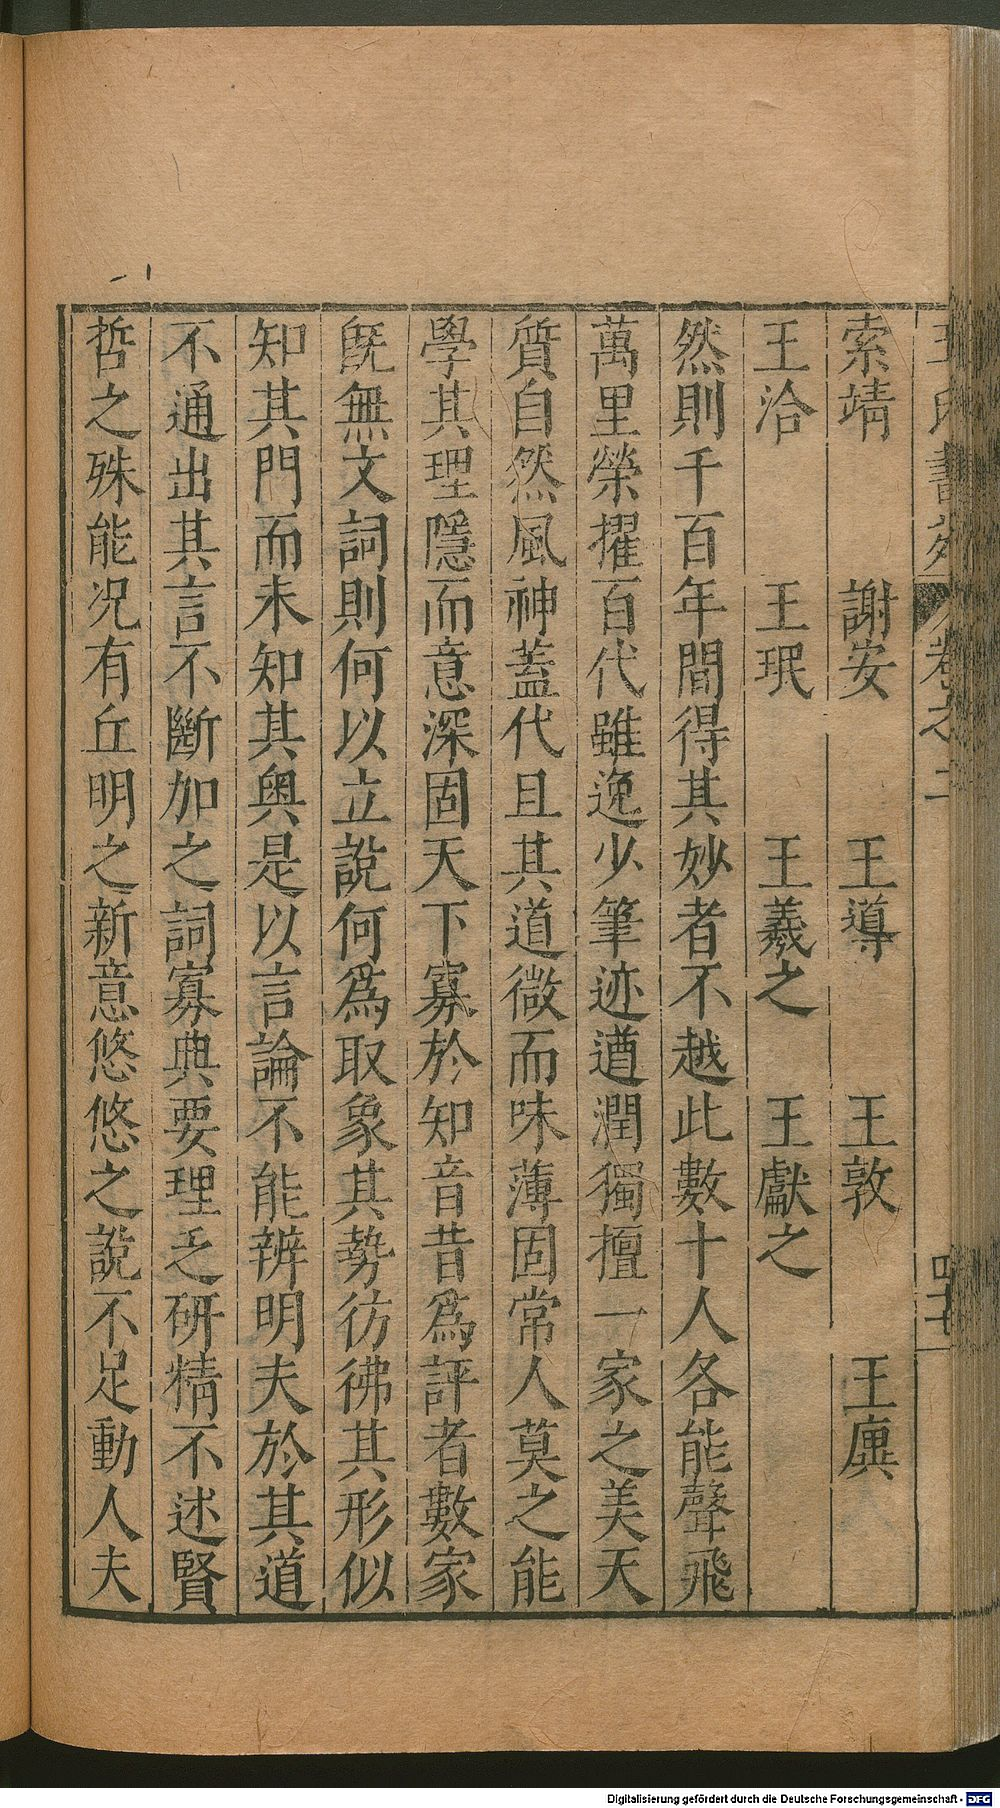 索靖 謝安 王導 王敦 王廙
王洽 王珉 王羲之 王獻之
然則千百年間得其妙者不越此數十人各能聲飛
萬里榮擢百代雖逸少筆迹遒潤獨擅一家之美天
質自然風神蓋代且其道微而味薄固常人莫之能
學其理隱而意深固天下寡於知音昔爲評者數家
旣無文詞則何以立說何爲取象其勢彷彿其形似
知其門而未知其奥是以言論不能辨明夫於其道
不通出其言不斷加之詞寡典要理乏研精不述賢
哲之殊能況有丘明之新意悠悠之說不足動人夫
Digitalisierung gefördert durch die Deutsche Forschungsgemeinschaft - DFG